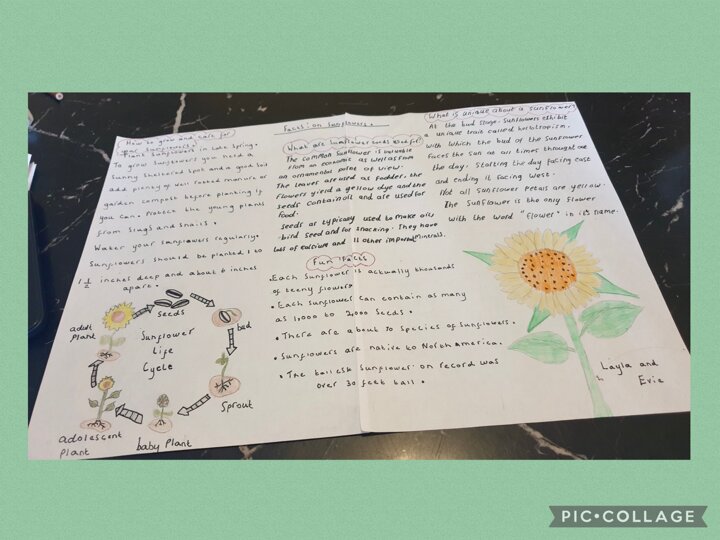 Facts: on Sunflowers.
How to grow and care for
your sunflowers:
Plant sunflowers in Late Spring.
To grow sunflowers you need a
Sunny Sheltered Spot and a good soil
add plenty of well rotted manure or
garden compost before planting if
you can. Protect the young plants
from Slugs and Snails.
Water your sunflowers regularly.
Sunflowers should be planted 1 to
1 1/2 inches deep and about 6 inches
apart.
adult
Plant
Seeds
bed
Sunflower
Life
Cycle
Sprout
baby Plant
adolescent
Plant
What are Sunflower seeds used for
The common Sunflower is valuable
from an economic as well as from
an ornamental point of view.
The leaves are used as fodder, the
flowers yield a yellow dye and the
seeds contain oil and are used for
food.
Seeds are typically used to make oils
bird seed and for snacking. They have
lots of calcium and 11 other important minerals.
Fun Facts
• Each Sunflower is actually thousands
of teeny flowers
• Each Sunflower can contain as many
as 1,000 to 2,000 Seeds.
• There are about 70 Species of Sunflowers.
• Sunflowers are native to North America.
• The tallest Sunflower on record was
over 30 feet tall.
What is unique about a sunflower
At the bud stage, Sunflowers exhibit
a unique trait called heliotropism.
with which the bud of the sunflower
faces the sun at all times throughout
the day. Starting the day facing east
and ending it facing west.
Not all Sunflower petals are yellow.
The Sunflower is the only flower
with the word "flower" in its name.
Layla and
Evie
PIC•COLLAGE